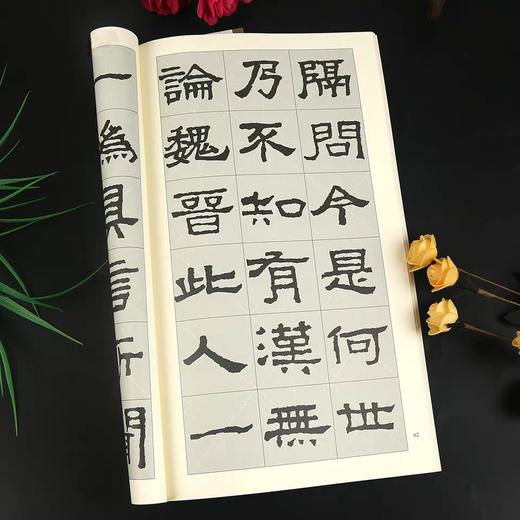 隔問今是何世
乃不知有漢無
論魏晉此人一
一為具言所聞
62